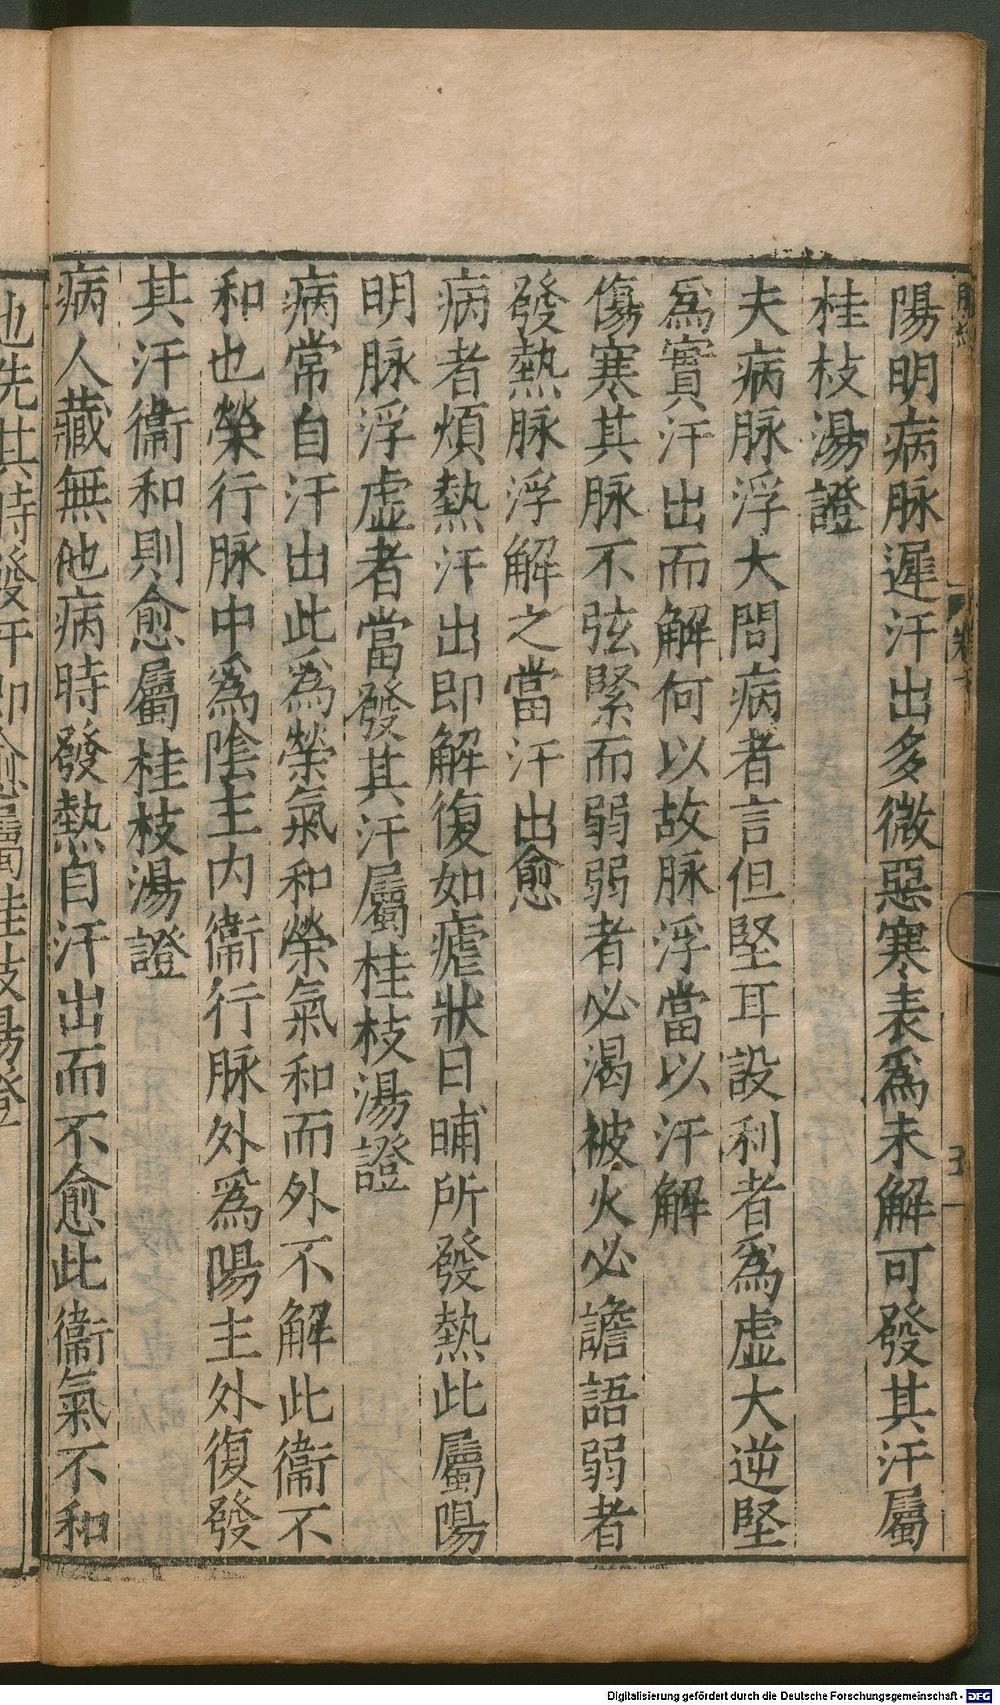 陽明病脉遲汗出多微惡寒表爲未解可發其汗屬
桂枝湯證
夫病脉浮大問病者言但堅耳設利者爲虛大逆堅
爲實汗出而解何以故脉浮當以汗解
傷寒其脉不弦緊而弱弱者必渴被火必譫語弱者
發熱脉浮解之當汗出愈
病者煩熱汗出即解復如瘧狀日晡所發熱此屬陽
明脉浮虛者當發其汗屬桂枝湯證
病常自汗出此爲榮氣和榮氣和而外不解此衞不
和也榮行脉中爲陰主内衞行脉外爲陽主外復發
其汗衞和則愈屬桂枝湯證
病人藏無他病時發熱自汗出而不愈此衞氣不和
也先其時發汗即愈屬桂枝湯證
Digitalisierung gefördert durch die Deutsche Forschungsgemeinschaft - DFG